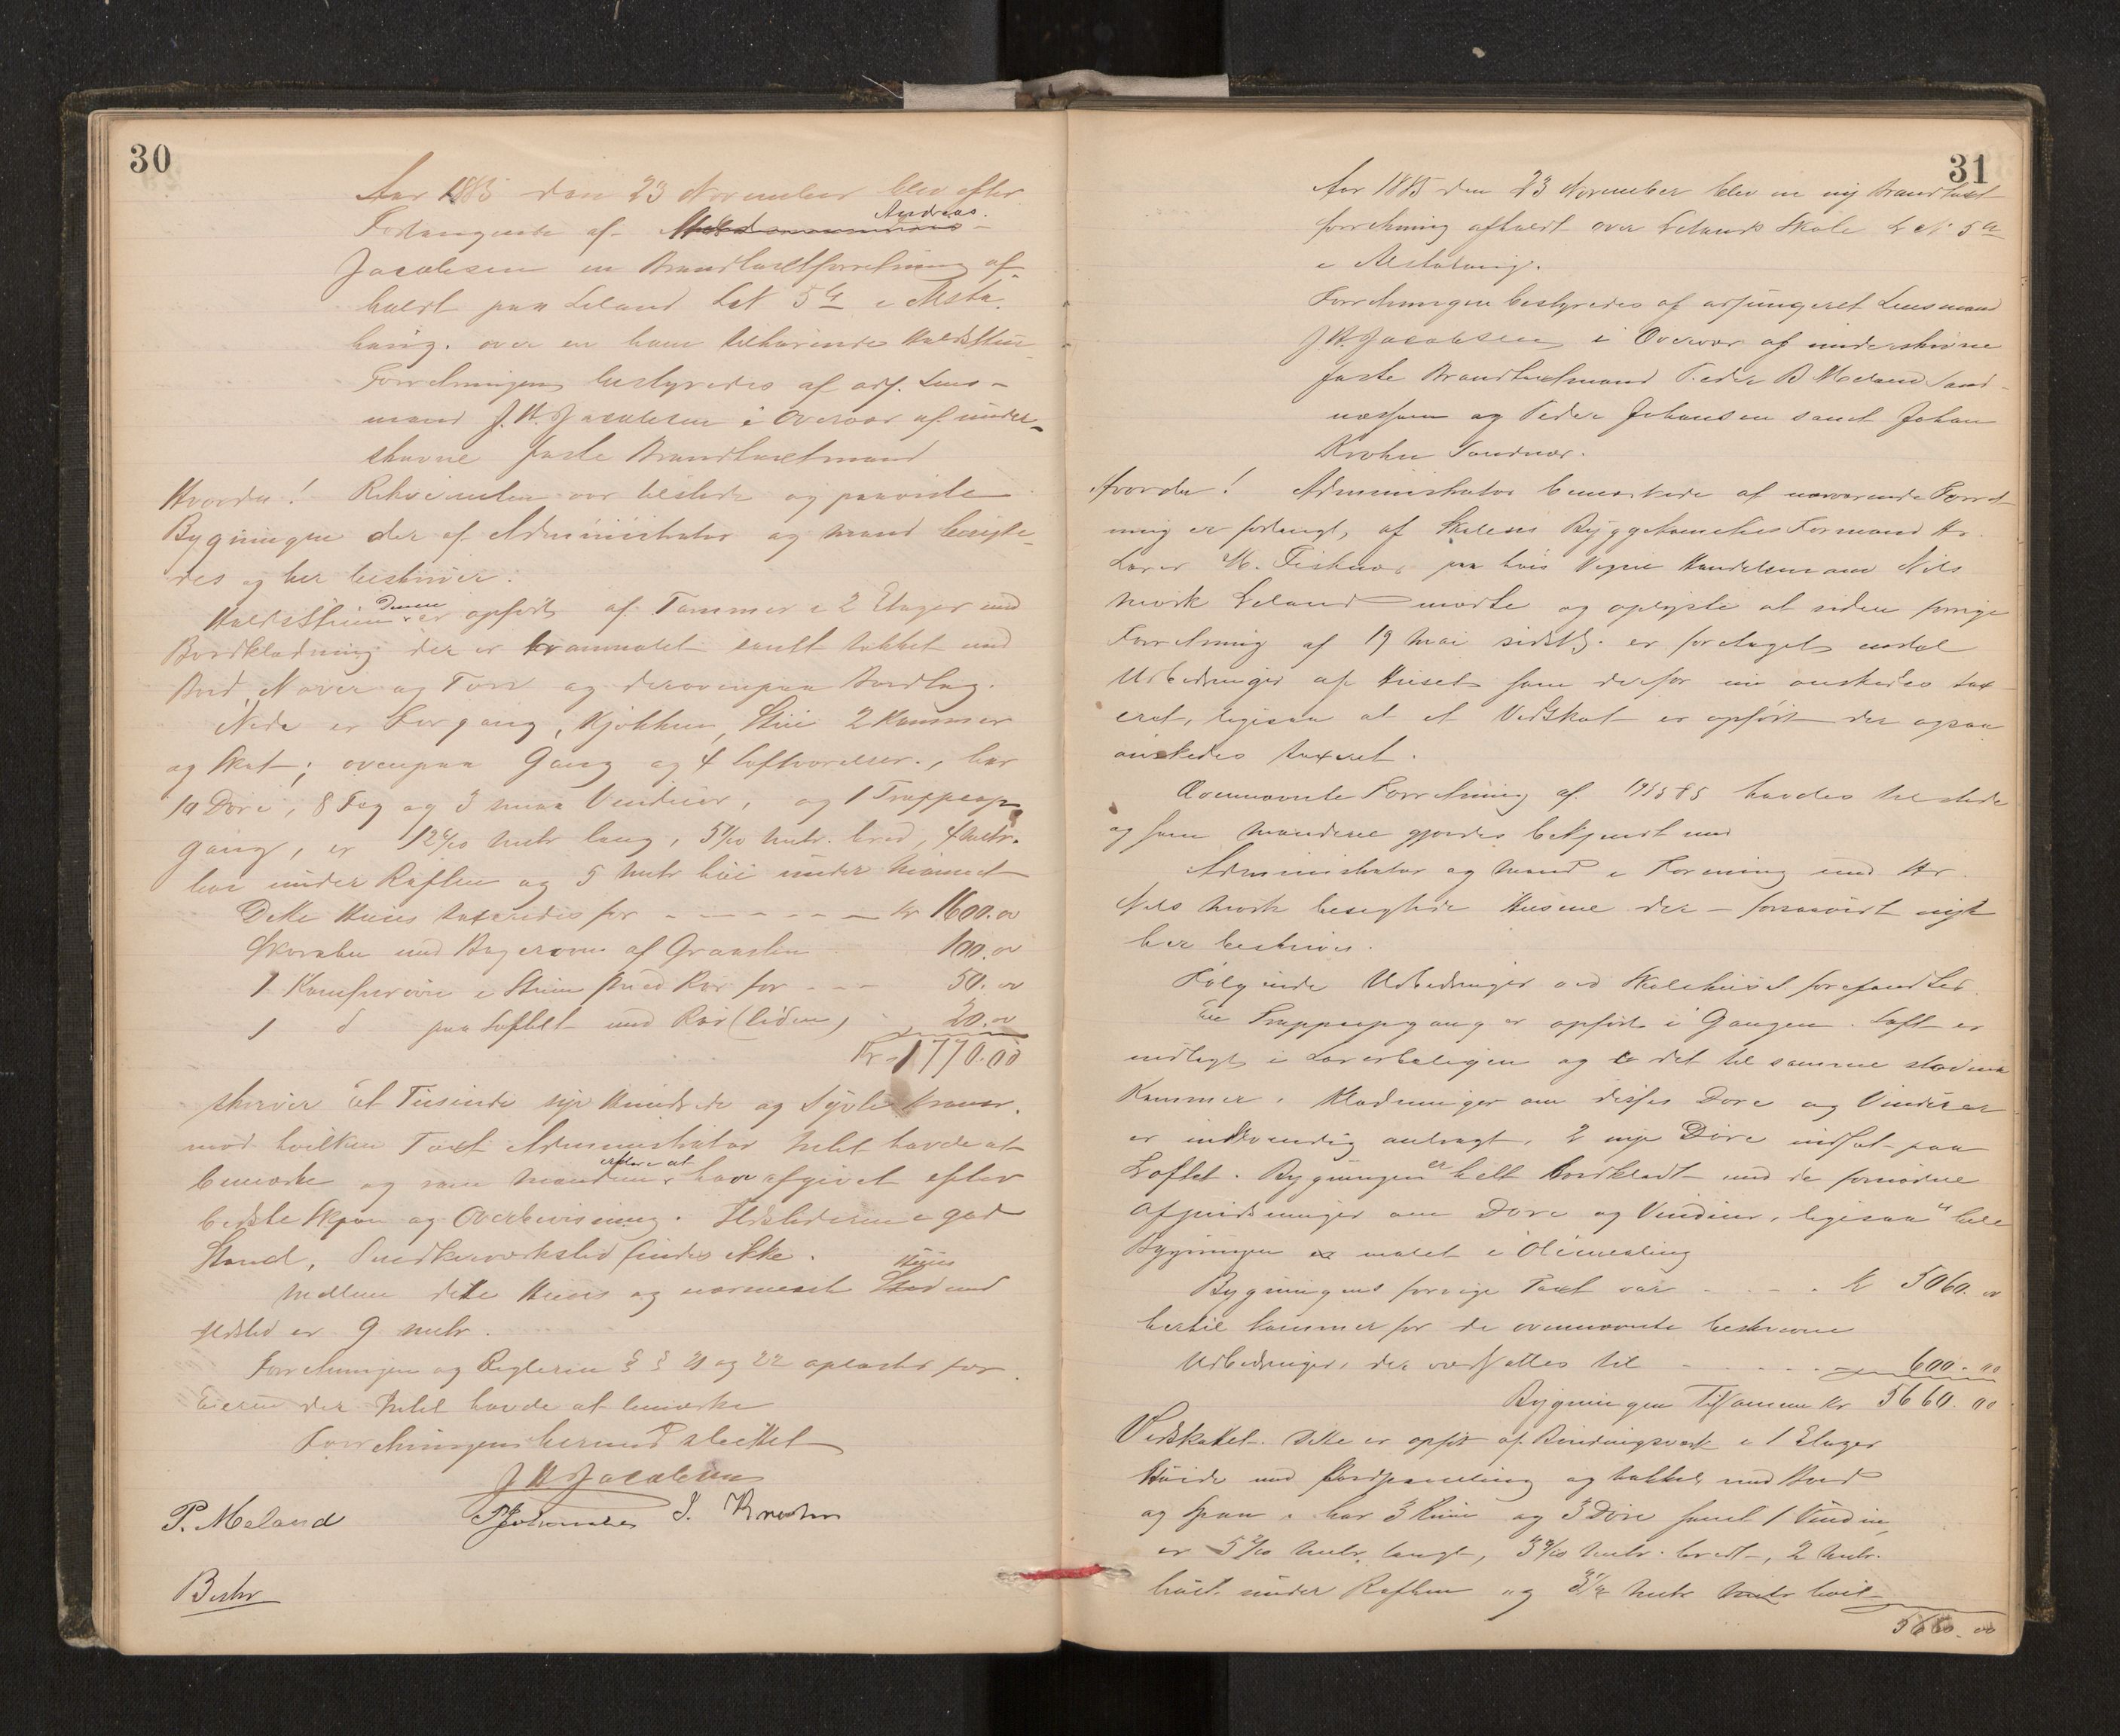 30
Aar 1885 den 23 November blev efter
Forlangende af Andreas
Jacobsen en Brandtaxtforretning af-
holdt paa Leland L No 5a i Alsta-
haug. over en ham tilhørende Huusstue
Forretningen bestyredes af adj. Lens-
mand J. H. Jacobsen i Overvær af under-
skrevne faste Brandtaxtmænd
Hvorda! Rekvirenten var tilstede og paaviste
Bygningen der af Administrator og Mænd besigte-
des og her beskrives.
Denne er opført af Tømmer i 2 Etager med
Bordklædning der er malet samt tækket med
Bord, Næver og Torv og derovenpaa Bordtag.
Nede er Forgang, Kjøkken, Stue 2 Kammer
og Skot; ovenpaa Gang og 4 Loftværelser, har
10 Døre, 8 Fag og 3 smaa Vinduer, og 1 Trappeop-
gang, er 12 6/10 Metr lang, 5 7/10 Metr. bred, 4 Metr.
høi under Raften og 5 Metr høi under Mønnet
Dette Huus taxeredes for - - - - - - Kr 1600.00
Skorsten med Bagerovn af Graasten 100.00
1 Komfurovn i Stuen med Rør for - - - 50.00
1 d paa Loftet med Rør (liden) 20.00
Kr 1770.00
skriver Et Tusinde syv Hundrede og Sytti Kroner.
mod hvilken Taxt Administrator Intet havde at
bemærke og som Mændene erklære at have afgivet efter
bedste Skjøn og Overbevisning. Ildstederne i god
Stand, Snedkerværksted findes ikke.
Mellem dette Huus og nærmeste Huus med
Ildsted er 9 Metr.
Forretningen og Reglerne § § 21 og 22 oplæstes for
Eieren der Intet havde at bemærke
Forretningen hermed sluttet
J H Jacobsen
P. Meland P Johansen J. Krohn
Beskr

31
Aar 1885 den 23 November blev en ny Brandtaxt
forretning afholdt over Lelands Skole L No 5a
i Alstahaug.
Forretningen bestyredes af adjungeret Lensmand
J. H. Jacobsen i Overvær af underskrevne
faste Brandtaxtmænd Peder B Meland Sand-
næssjøen og Peder Johansen samt Johan
Krohn Sandnæs.
Hvorda! Administrator bemærkede at nærværende Forret-
ning er forlangt af Skolens Byggekomites Formand Hr.
Lærer M. Fisknes paa hvis Vegne Handelsmand Nils
Mork Leland mødte og oplyste at siden forrige
Forretning af 19 Mai sidstl. er foretaget endel
Udbedringer af Huset som derfor nu ønskedes tax-
eret, ligesaa at et Vedskot er opført der ogsaa
ønskedes taxeret.
Ovennævnte Forretning af 19/5 85 havdes tilstede
og som Mændene gjordes bekjendt med
Administrator og Mænd i Forening med Hr.
Nils Mork besigtede Husene der forsaavidt nyt
her beskrives.
Følgende Udbedringer ved Skolehuset forefandtes.
En Trappeopgang er opført i Gangen. Loft er
indlagt i Lærerboligen og det til samme stødende
Kammer. Klædninger om disses Døre og Vinduer
er indvendig anbragt, 2 nye Døre indsat paa
Loftet. Bygningen er helt bordklædt med de fornødne
Afpudsninger om Døre og Vinduer, ligesaa er hele
Bygningen malet i Oliemaling
Bygningens forrige Taxt var - - - - Kr 5060.00
hertil kommer for de ovennævnte beskrevne
Udbedringer, der værdsættes til - - - - 600.00
Bygningen Tilsammen Kr 5660.00
Vedskottet. Dette er opført af Bindingsværk i 1 Etages
Høide med Bordpaneling og tækket med Bord
og Spaan. har 3 Rum og 3 Døre samt 1 Vindue,
er 5 2/10 Metr. langt, 3 4/10 Metr. bredt, 2 Metr.
høit under Raften og 3 1/2 Metr høit
5660.00